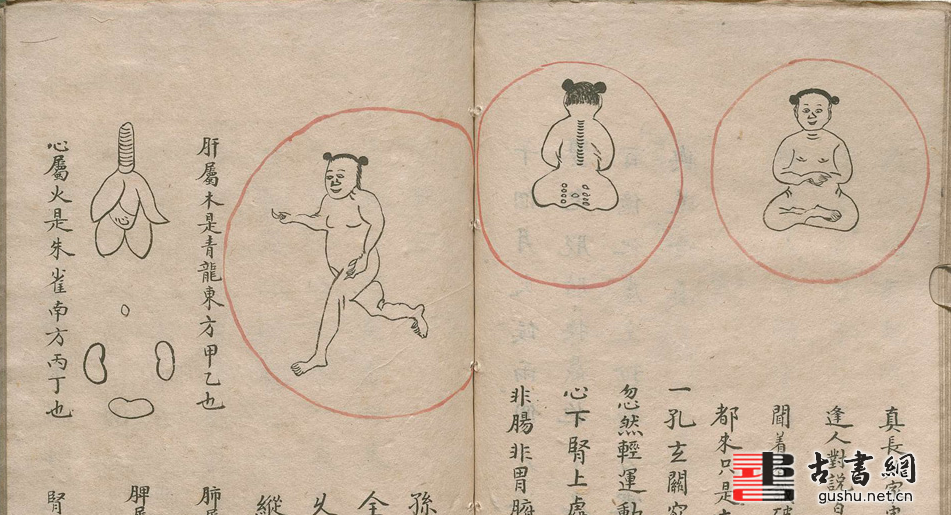 真長
逢人對說
聞着
都來只是
一孔玄關
忽然輕運動
心下腎上處
非腸非胃
肝屬木是青龍東方甲乙也
心屬火是朱雀南方丙丁也
孫
全
久
縱
肺
脾
腎
古書網
gushu.net.cn